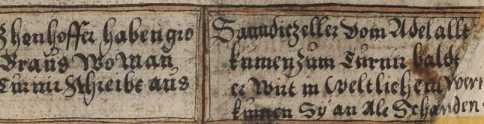 habengro
Braus Woman
Turnir schreibt aus
Sanndiczeller vom Adel allt
kumen zum Turnir baldt
er Wirt in Weltlichem
kumen Sy an Ale Schanden